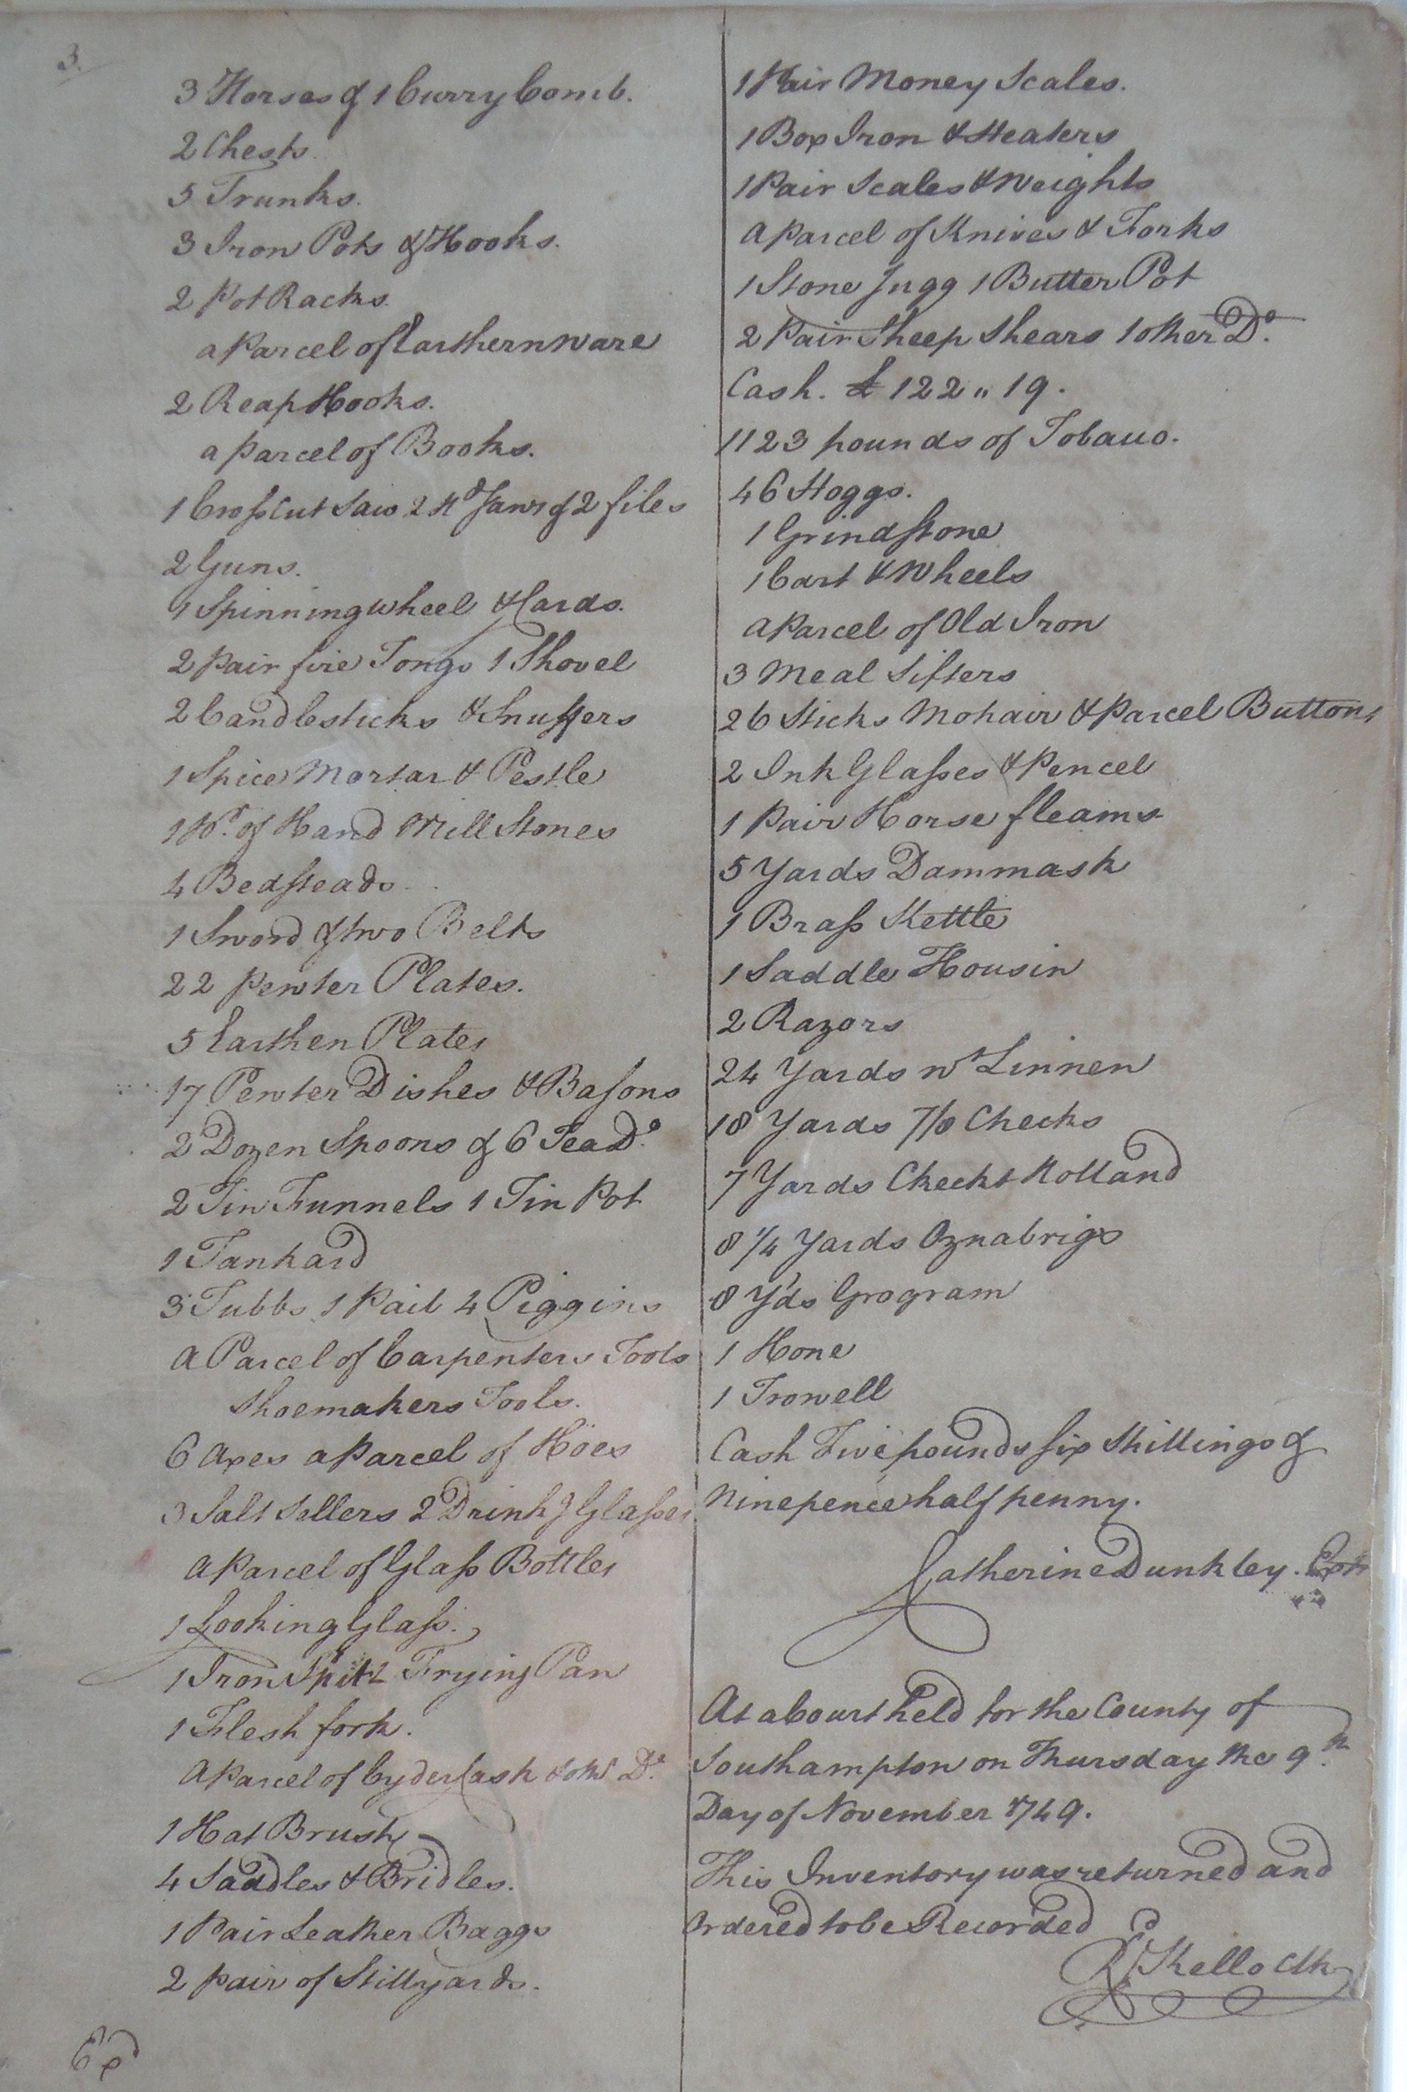 3.
3 Horses & 1 Curry Comb.
2 Chests
5 Trunks.
3 Iron Pots & Hooks.
2 Pot Racks.
a Parcel of Earthern ware
2 Reap Hooks.
a Parcel of Books.
1 Cross Cut Saw 2 Hd Saws & 2 files
2 Guns.
1 Spinning wheel & Cards.
2 Pair fire Tongs 1 Shovel
2 Candlesticks & Snuffers
1 Spice Mortar & Pestle
1 Pr. of Hand Mill Stones
4 Bedsteads
1 Sword & two Belts
22 Pewter Plates.
5 Earthen Plates
17 Pewter Dishes & Basons
2 Dozen Spoons & 6 Tea Do.
2 Tin Funnels 1 Tin Pot
1 Tankard
3 Tubbs 1 Pail 4 Piggins
a Parcel of Carpenters Tools
Shoemakers Tools.
6 Axes a Parcel of Hoes
3 Salt Sellers 2 Drinkg Glasses
a Parcel of Glass Bottles
1 Looking Glass.
1 Iron Spit 2 Frying Pan
1 Flesh fork.
a Parcel of Cyder Cask & othr Do.
1 Hat Brush
4 Saddles & Bridles.
1 Pair Leather Baggs
2 pair of Stillyards.
Exd
1 Pair Money Scales.
1 Box Iron & Heaters
1 Pair Scales & Weights
a Parcel of Knives & Forks
1 Stone Jugg 1 Butter Pot
2 Pair Sheep Shears 1 other Do.
Cash. £ 122 " 19.
1123 pounds of Tobacco.
46 Hoggs.
1 Grindstone
1 Cart & Wheels
a Parcel of Old Iron
3 Meal Sifters
26 Sticks Mohair & Parcel Buttons
2 Ink Glasses & Pencel
1 Pair Horse fleams
5 Yards Dammask
1 Brass Kettle
1 Saddle Housin
2 Razors
24 Yards wt Linnen
18 Yards 7/8 Checks
7 Yards Checkt Holland
8 1/4 Yards Oznabrigs
8 Yds Grogram
1 Hone
1 Trowell
Cash Five pounds six Shillings &
Ninepence half penny.
Catherine Dunkley. Extr
At a Court held for the County of
Southampton on Thursday the 9th.
Day of November 1749.
This Inventory was returned and
Ordered to be Recorded
R Kello Clk